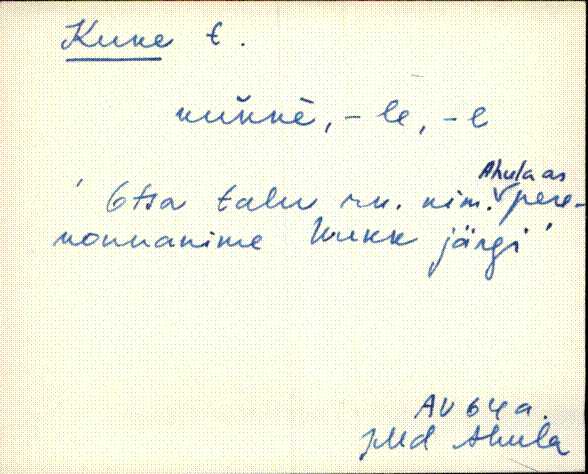 Kuke t.
kukkē, - le, - l
' Otsa talu rn. nim. Ahula as pere-
konnanime Kukk järgi '
AV 64 a.
JMd Ahula